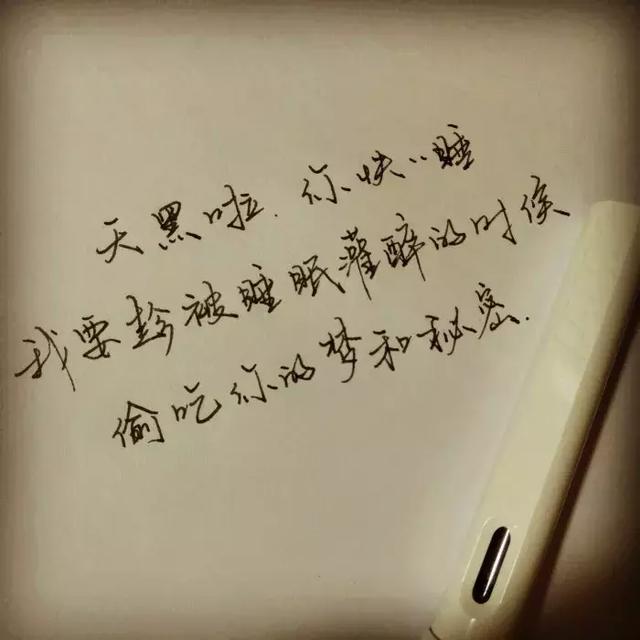 天黑啦.你快快睡
我要趁被睡眠灌醉的时候
偷吃你的梦和秘密.